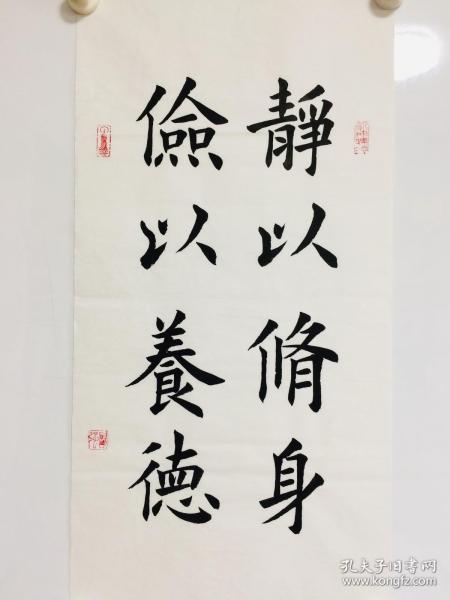 靜以脩身
儉以養德
孔夫子旧书网
www.kongfz.com